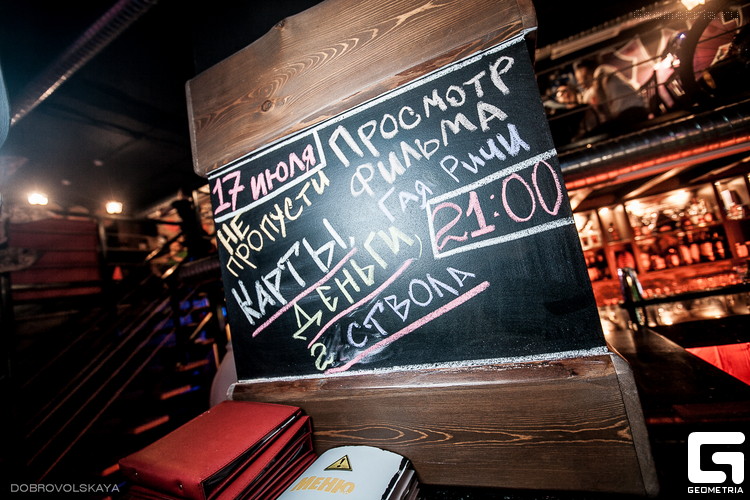 17 ИЮЛЯ
НЕ
ПРОПУСТИ
ПРОСМОТР
ФИЛЬМА
ГАЯ РИЧИ
21:00
КАРТЫ,
ДЕНЬГИ
2 СТВОЛА
МЕНЮ
DOBROVOLSKAYA
GEOMETRIA